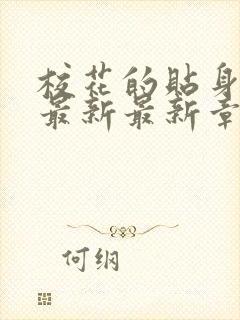 校花的贴身
最新最新章
何纲